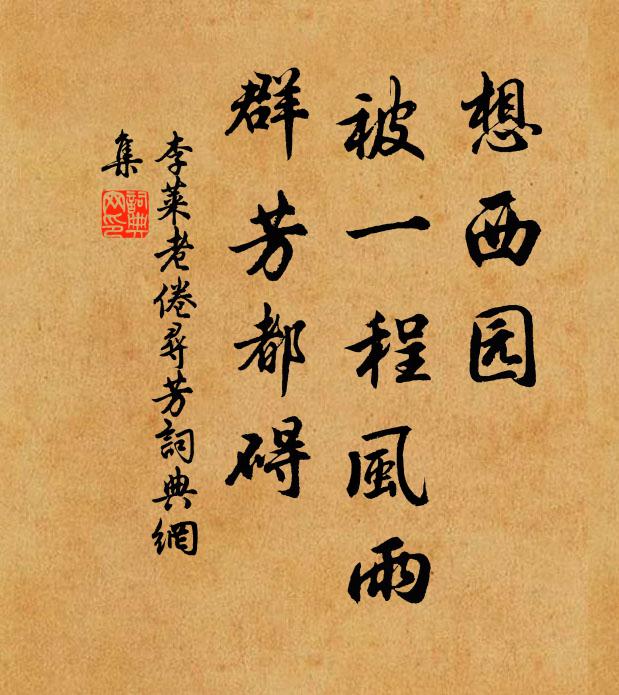 想西园
被一程風雨
群芳都碍
李莱老倦尋芳詞典網
集
詞典
网印